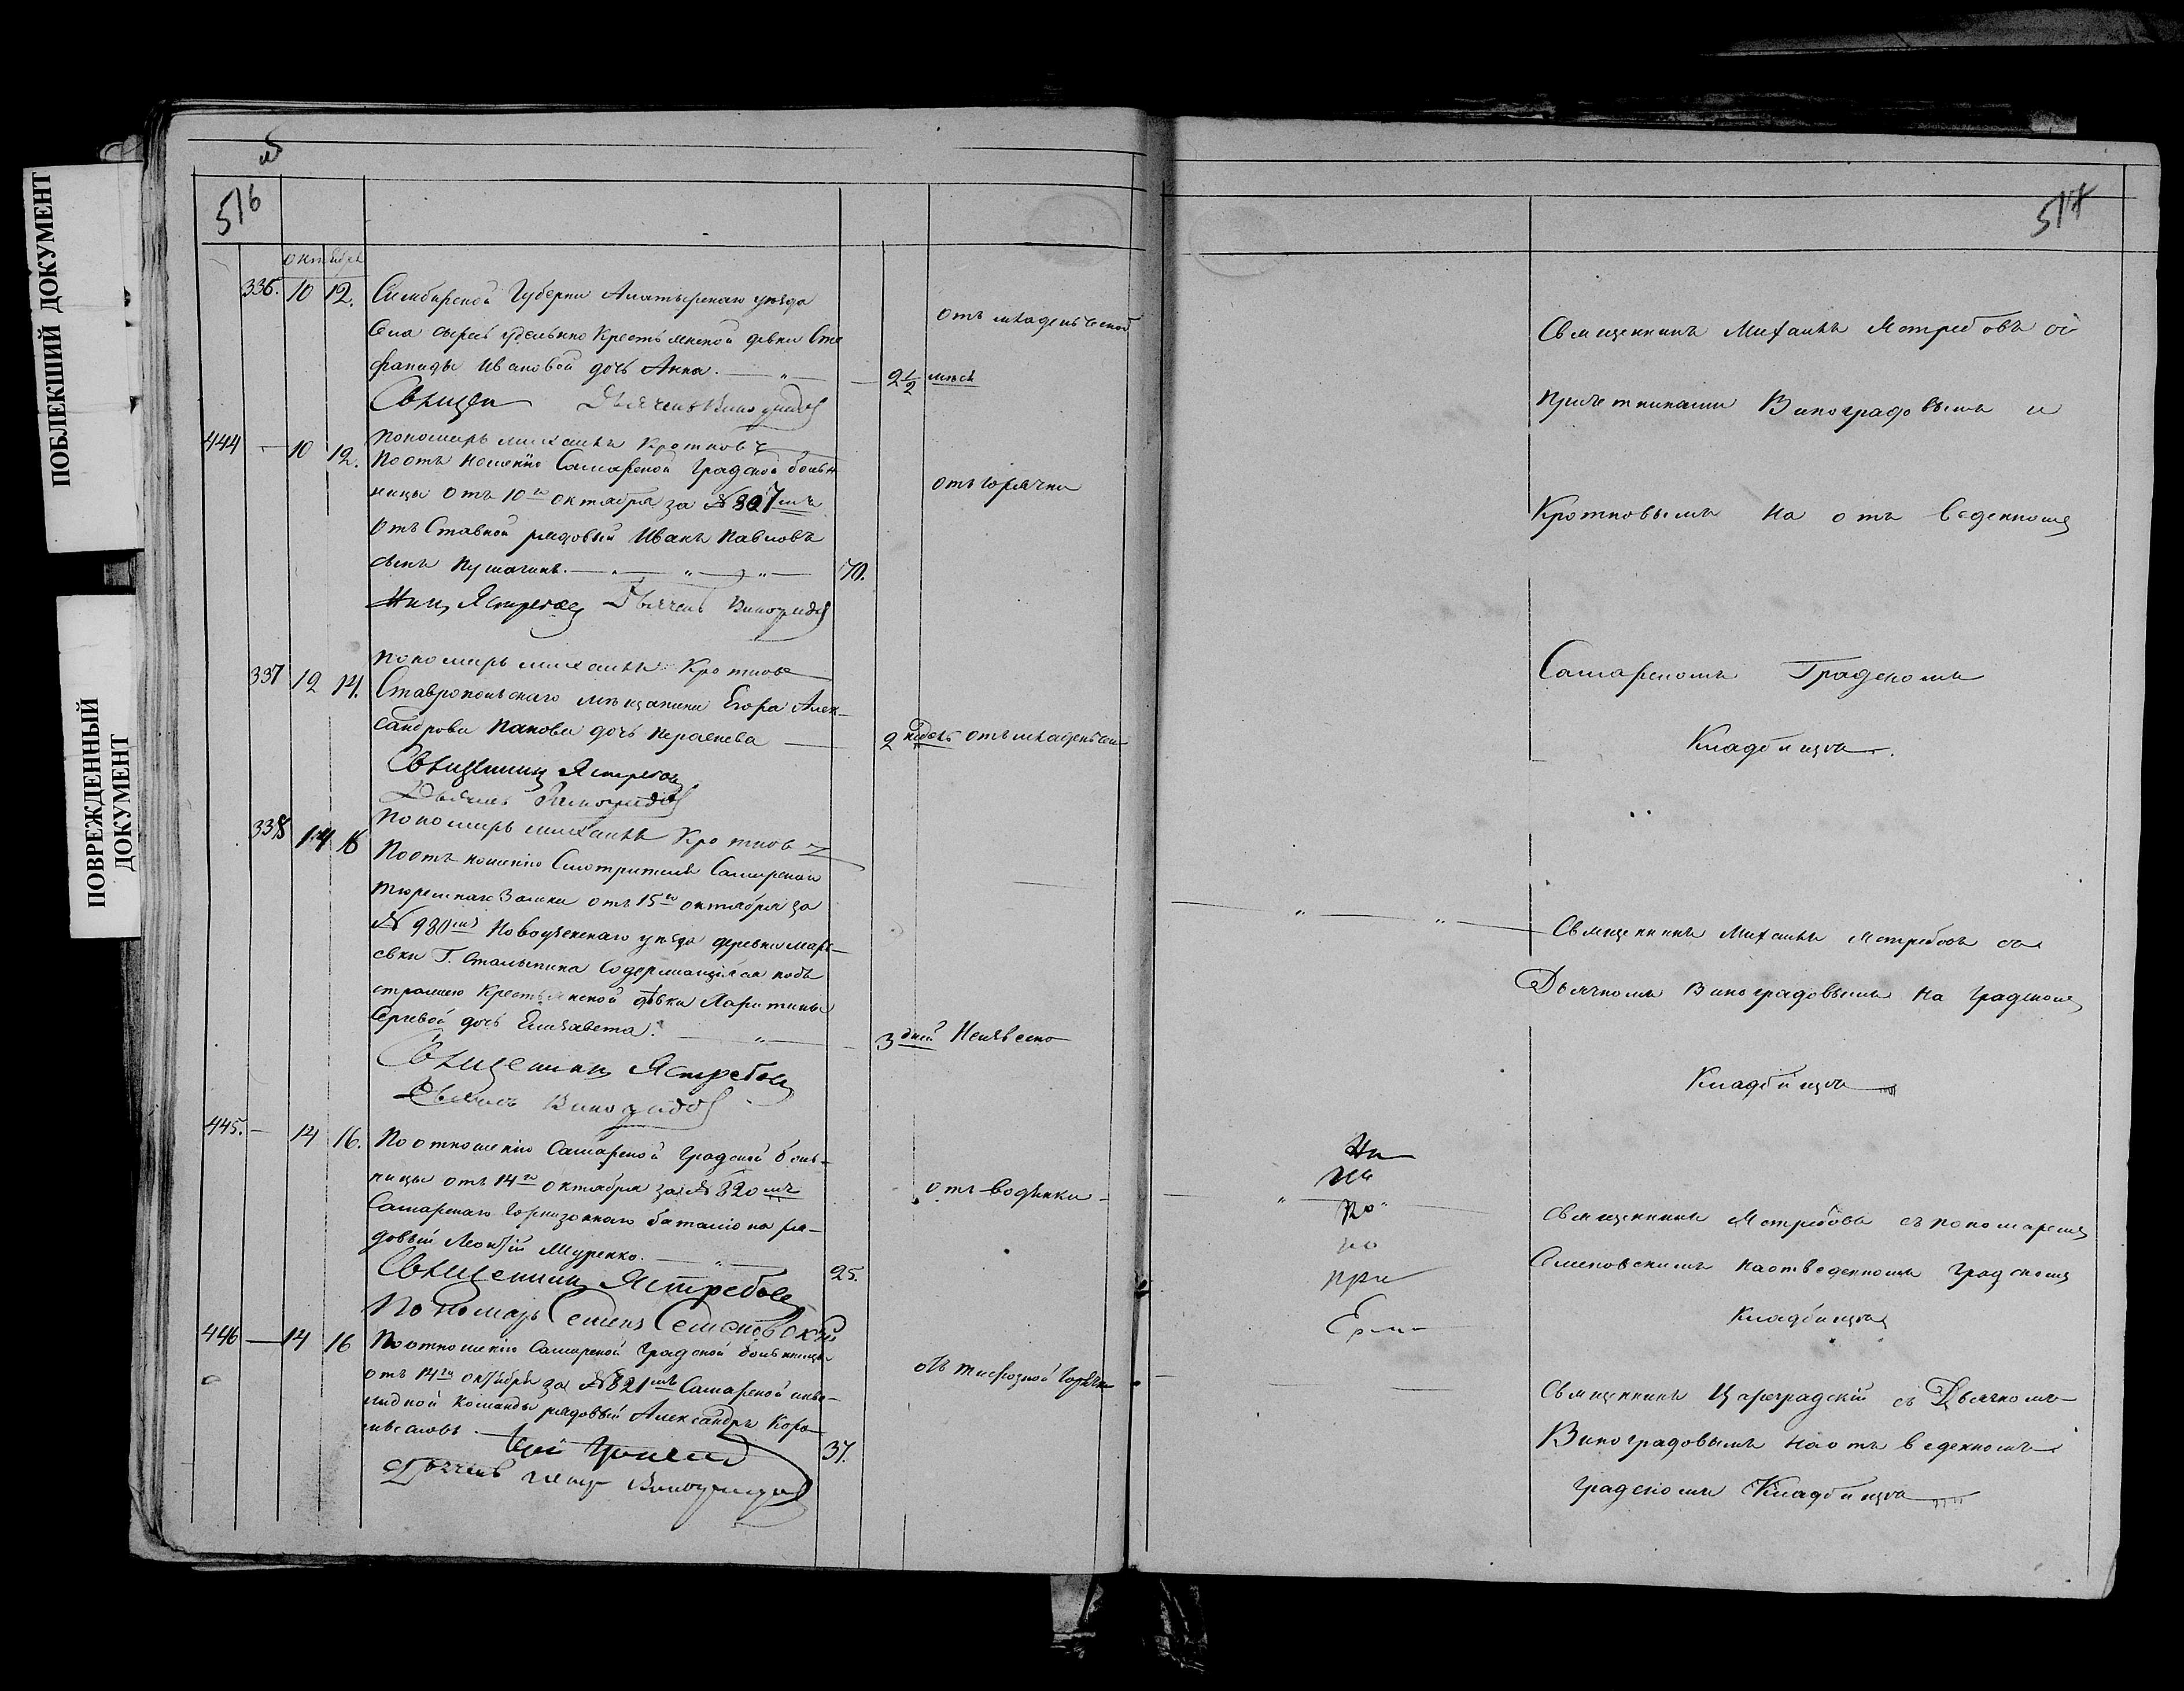 ПОБЛЕКШИЙ ДОКУМЕНТ
ПОВРЕЖДЕННЫЙ
ДОКУМЕНТ
516
октября
336. 10 12. Симбирской Губерни Алатырскаго уезда
Села сырей удельнно Крестьянской девки Сте
фаниды Ивановой дочь Анна. — 2 1/2 месе
отъ младенческой
Дьячекъ Виноградовъ
пономарь михаилъ Кротковъ
444 — 10 12. По отъ ношению Самарской градской боль
ницы отъ 10го октября за № 807мъ
отъ Ставной рядовый Иванъ Павловъ
сынъ 70.
отъ горячки
Ястребовъ Дьячекъ Виноградовъ
пономарь михаилъ Кротковъ
337 12 14. Ставропольскаго мещанина Егора Алек-
сандрова Панова дочь — 2 недель отъ младенчес
Священникъ Ястребовъ
Дьячекъ Виноградовъ
пономарь михаилъ Кротковъ
338 14 16 По отъ ношению Смотрителя Самарскаго
тюремнаго Замка отъ 15го октября за
№ 980мъ Новоузенскаго уезда деревни Марь-
евки Г. Сталыпина Содержащияся подъ
стражею Крестьянской девки
дочь Елизавета. — 3 дней Неизвесно
Священникъ Ястребовъ
Дьячекъ Виноградовъ
445. — 14 16. По отношению Самарской градской боль-
ницы отъ 14го октября за № 820мъ
Самарскаго гарнизоннаго баталиона ря-
довый Леонтий Шуренко. — 25.
отъ водянки
Священникъ Ястребовъ
Пономарь Семенъ Семеновский
446 — 14 16 По отношению Самарской градской больницы
отъ 14го октября за № 821мъ Самарской инва-
лидной команды рядовый Александръ
37.
отъ тифозной горячки
Дьячекъ Виноградовъ
517
Священникъ Михаилъ Ястребовъ съ
причетниками Виноградовымъ и
Кротковымъ на отъ веденномъ
Самарскомъ Градскомъ
Кладбище.
Священникъ Михаилъ Ястребовъ съ
Дьячкомъ Виноградовымъ на градскомъ
Кладбище
по
но
при
Священникъ Ястребовъ съ пономаремъ
Семеновскимъ на отведенномъ градскомъ
Кладбище
Священникъ Цареградский съ Дьячкомъ
Виноградовымъ на отъ веденномъ
градскомъ Кладбище